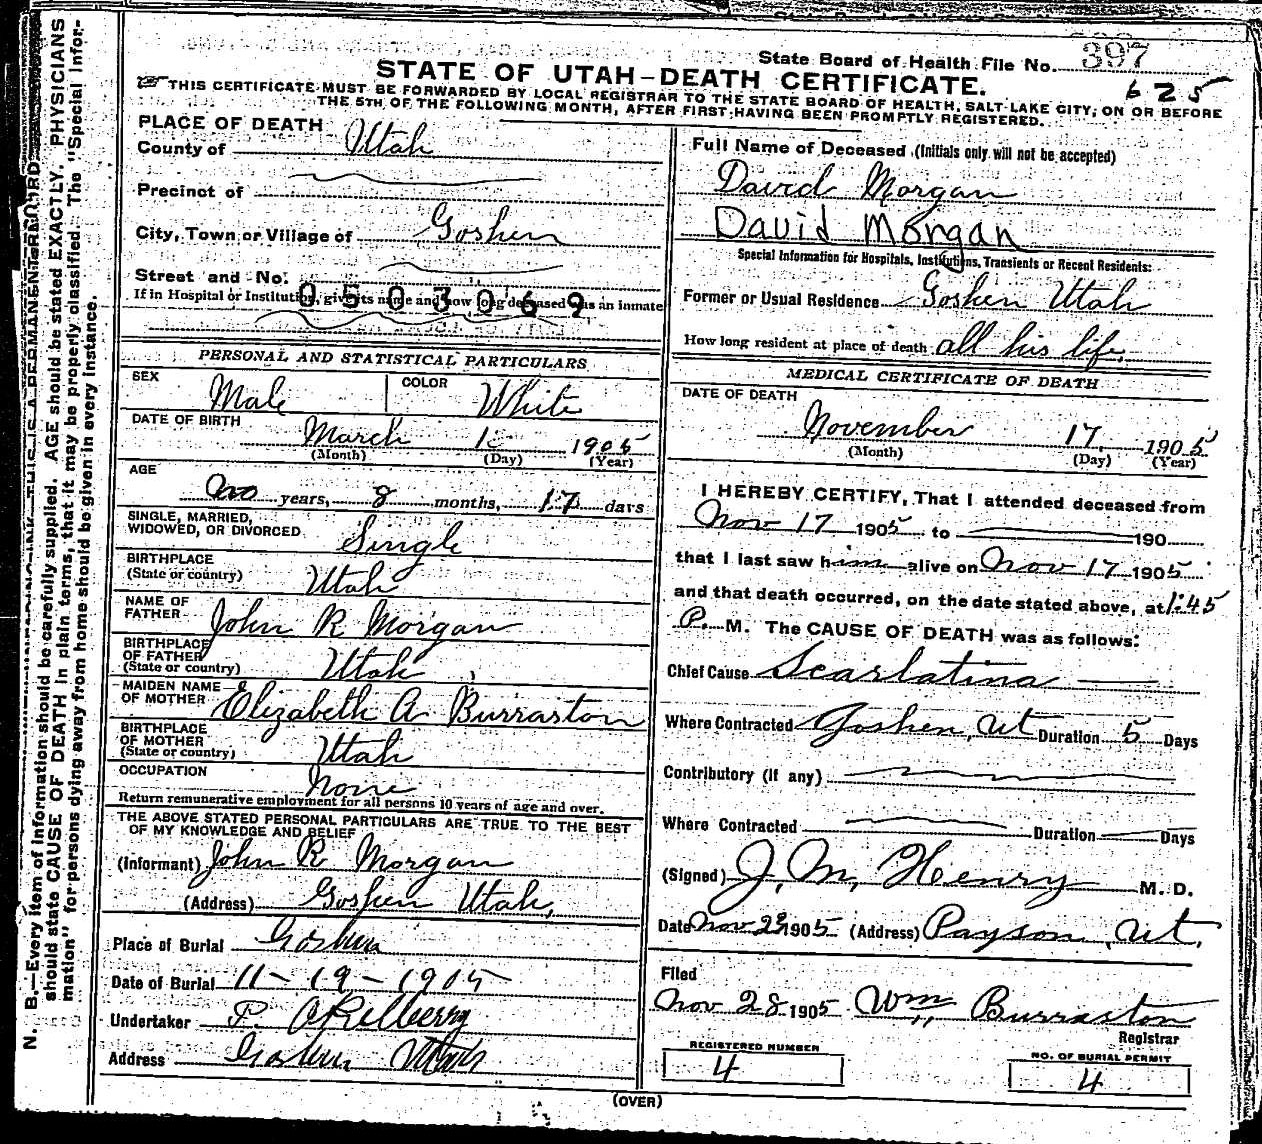 State Board of Health File No. 397
STATE OF UTAH-DEATH CERTIFICATE.
625
THIS CERTIFICATE MUST BE FORWARDED BY LOCAL REGISTRAR TO THE STATE BOARD OF HEALTH, SALT LAKE CITY, ON OR BEFORE
THE 5TH OF THE FOLLOWING MONTH, AFTER FIRST HAVING BEEN PROMPTLY REGISTERED.
PLACE OF DEATH
County of Utah
Precinct of
City, Town or Village of Goshen
Street and No.
If in Hospital or Institution, give its name and how long deceased was an inmate
0503069
PERSONAL AND STATISTICAL PARTICULARS
SEX Male COLOR White
DATE OF BIRTH March 1 1905
(Month) (Day) (Year)
AGE
no years, 8 months, 17 days
SINGLE, MARRIED,
WIDOWED, OR DIVORCED Single
BIRTHPLACE
(State or country) Utah
NAME OF
FATHER John R Morgan
BIRTHPLACE
OF FATHER
(State or country) Utah
MAIDEN NAME
OF MOTHER Elizabeth A Burraston
BIRTHPLACE
OF MOTHER
(State or country) Utah
OCCUPATION None
Return remunerative employment for all persons 10 years of age and over.
THE ABOVE STATED PERSONAL PARTICULARS ARE TRUE TO THE BEST
OF MY KNOWLEDGE AND BELIEF
(Informant) John R Morgan
(Address) Goshen Utah,
Place of Burial Goshen
Date of Burial 11-19-1905
Undertaker P. Okelberry
Address Goshen Utah
Full Name of Deceased (Initials only will not be accepted)
David Morgan
David Morgan
Special Information for Hospitals, Institutions, Transients or Recent Residents:
Former or Usual Residence Goshen Utah
How long resident at place of death all his life.
MEDICAL CERTIFICATE OF DEATH
DATE OF DEATH
November 17 1905
(Month) (Day) (Year)
I HEREBY CERTIFY, That I attended deceased from
Nov 17 1905 to 190
that I last saw him alive on Nov 17 1905
and that death occurred, on the date stated above, at 1:45
P. M. The CAUSE OF DEATH was as follows:
Chief Cause Scarlatina
Where Contracted Goshen, Ut Duration 5 Days
Contributory (if any)
Where Contracted Duration Days
(Signed) J. M. Henry M. D.
Date Nov 1905 (Address) Payson, Ut.
Filed
Nov 28 1905 Wm Burraston
Registrar
REGISTERED NUMBER
4
NO. OF BURIAL PERMIT
4
(OVER)
N. B.—Every item of information should be carefully supplied. AGE should be stated EXACTLY. PHYSICIANS
should state CAUSE OF DEATH in plain terms, that it may be properly classified. The "Special Infor-
mation" for persons dying away from home should be given in every instance.